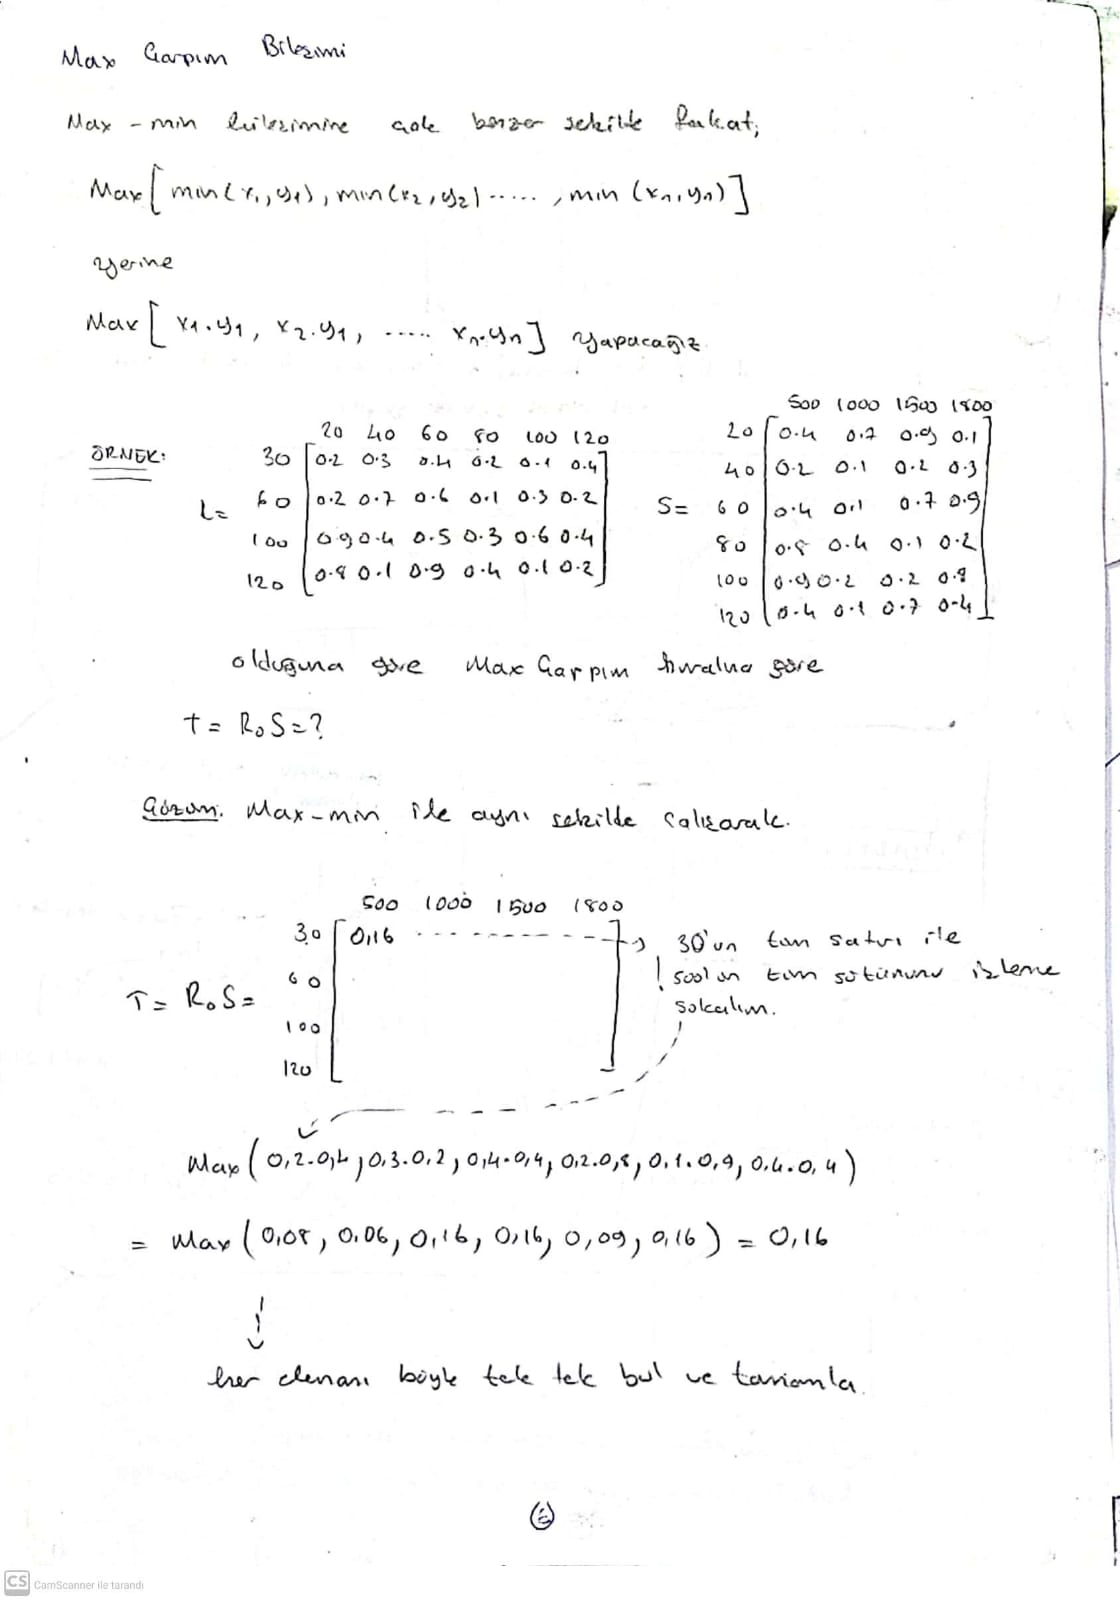 Max Çarpım Bileşimi
Max - min bileşimine çok benzer şekilde fakat;
Max [ min(x1, y1), min(x2, y2) ....., min (xn, yn) ]
yerine
Max [ x1.y1, x2.y1, ..... xn.yn ] yapacağız
500 1000 1500 1800
20 40 60 80 100 120
20 0.4 0.7 0.9 0.1
ÖRNEK:
30 0.2 0.3 0.4 0.2 0.1 0.4
40 0.2 0.1 0.2 0.3
L=
60 0.2 0.7 0.6 0.1 0.3 0.2
S= 60 0.4 0.1 0.7 0.9
100 0.9 0.4 0.5 0.3 0.6 0.4
80 0.8 0.4 0.1 0.2
120 0.8 0.1 0.9 0.4 0.1 0.2
100 0.9 0.2 0.2 0.8
120 0.4 0.1 0.7 0.4
olduğuna göre Max Çarpım kuralına göre
T = RoS = ?
Çözüm: Max-min ile aynı şekilde çalışarak.
500 1000 1500 1800
30 0,16
30'un tüm satırı ile
60
! 500'ün tüm sütununu işleme
T = RoS =
sokalım.
100
120
Max (0,2.0,4, 0,3.0,2, 0,4.0,4, 0,2.0,8, 0,1.0,9, 0,4.0,4)
= Max (0,08, 0,06, 0,16, 0,16, 0,09, 0,16) = 0,16
her elemanı böyle tek tek bul ve tamamla.
6
CS CamScanner ile tarandı